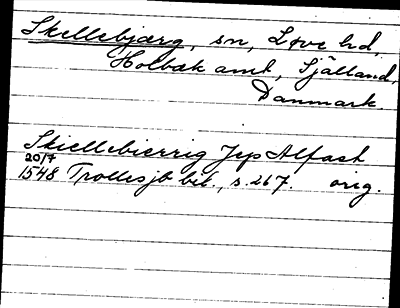 Skellebjærg, sn, Løve hd,
Holbæk amt, Själland,
Danmark.
Skiellebierrig Jep Alfast
20/7
1548 Trollesjb bil., s. 267. orig.